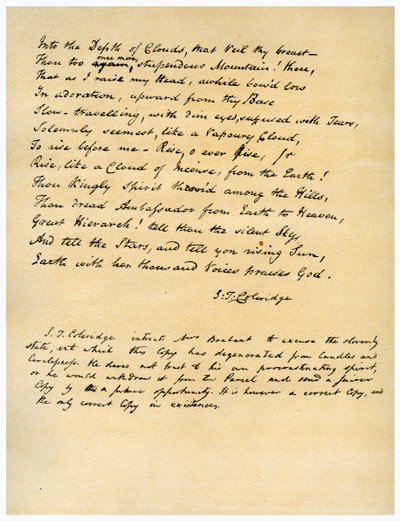 Into the Depth of Clouds, that Veil thy breast—
Thou too again, once more, stupendous Mountain! thou,
That as I raise my Head, awhile bow'd low
In adoration, upward from thy Base
Slow-travelling, with dim eyes suffused with Tears,
Solemnly seemest, like a Vapoury Cloud,
To rise before me— Rise, o ever Rise,
Rise, like a Cloud of Incense, from the Earth!
Thou Kingly Spirit thron'd among the Hills,
Thou dread Ambassador from Earth to Heaven,
Great Hierarch! tell thou the silent Sky,
And tell the Stars, and tell yon rising Sun,
Earth with her thousand Voices praises God.
S. T. Coleridge
S. T. Coleridge intreats Mrs Brabant to excuse the slovenly
state, into which this Copy has degenerated from Candles and
Carelessness. He dares not trust to his own procrastinating spirit,
or he would withdraw it from the Parcel and send a fairer
Copy by a future opportunity. It is however a correct Copy, and
the only correct Copy in existence.